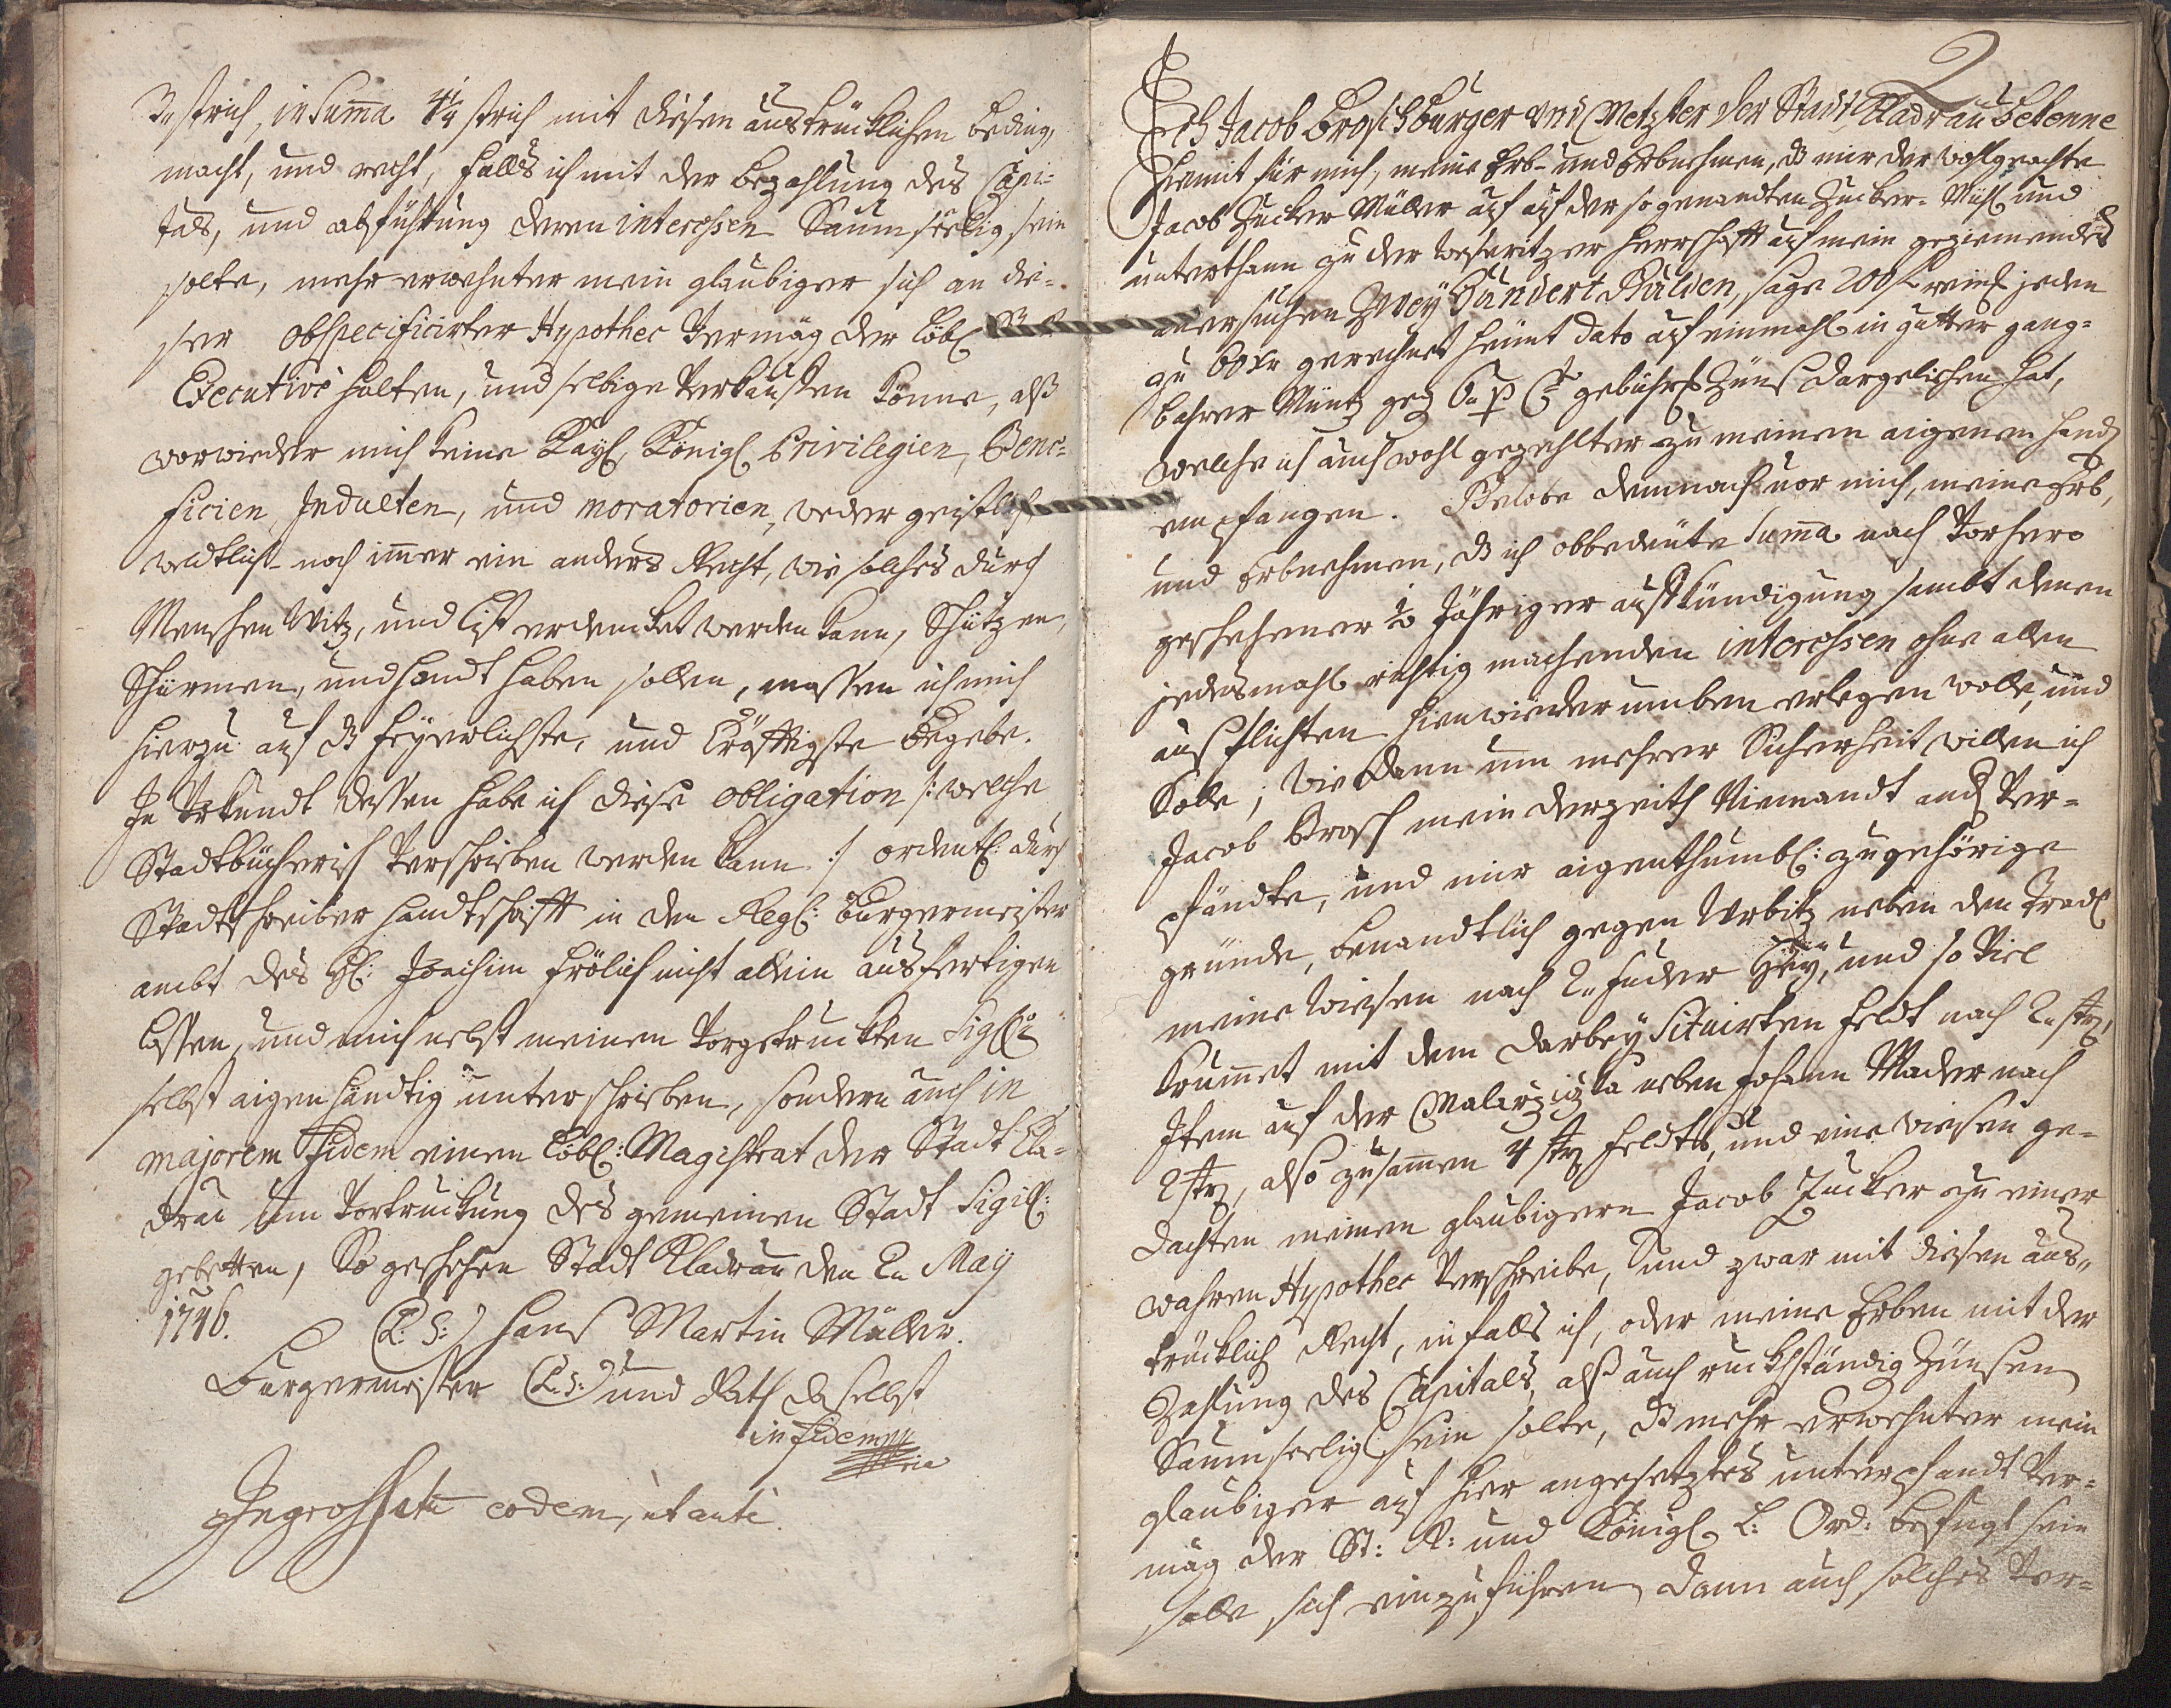 3 strich, in Suma 4¼ strich mit diesen austrücklichen beding,
macht, und recht, falls ich mit der bezahlung des Capi=
tals, und abführung deren interehsen Saumseelig sein
solte, mehr erwehnter mein glaubiger sich an die=
ser obspecificirter Hypothec Vermög der löbl
Executivè halten, und selbige Verkauffen könne, alß
vorwieder mich keine Kayl, Königl Privilegien, Bene=
ficien, Indulten, und moratorien, weder geistlich
weltlich noch imer ein anders Recht, wie solches durch
Menschen Witz, und list erdencket werden kann, Schützen,
Schirmen, und handt haben sollen, massen ich mich
hierzu auf dz feyerlichste, und kräfftigste begebe.
In Urkundt dessen habe ich diese obligation /: welche
Stadtbücherisch Verschrieben werden kann :/ ordentl: durch
Stadtschreiber handtschrifft in den Regl: Burgermeister
ambt des Hl: Joachim Frölich nicht allein ausfertigen
lassen, und mich nebst meinen Vorgetruckten Sigill
selbst aigen händtig unterschrieben, sondern auch in
majorem Fidem einen löbl: Magistrat der Stadt Kla=
drau um Vortruckung des gemeinen Stadt Sigill:
gebetten, So geschehen Stadt Kladrau den 2n May
1746. (L: S:) Hans Martin Müller.
Burgermeister (L: S:) und Rath daselbst
in fidem
Ingrohsatu eodem, ut ante.
2
Ich Jacob Brosch burger und Metzker der Stadt Kladrau bekenne
hiemit für mich, meine Erb- und Erbnehmen, dz mir der wohlgeachte
Jacob Zucker Müller auf auf der so genandten Zucker-Mühl und
unterthann zu der Herrschafft auf mein geziemendes
anersuchen Zwey Hundert Gulden, sage 200 f reinl jeden
zu 60 Xr gerechnet heünt dato auf einmahl in gutter gang=
bahrer Müntz geg 6 p Cto gebührl Züns dargeliehen hat,
welche ich auch wohl gezehlter zu meinen aigenen handen
empfangen. Gelobe demnach vor mich, meine Erb,
und Erbnehmen, dz ich obbedeüte Suma nach Vorhero
geschehener ½ Jähriger aufkündigung sambt denen
jedesmahl richtig machenden interehsen ohne allen
ausflichten hinwiederumben erlegen wolle, und
Solle; wie dann um mehrer Sicherheit willen ich
Jacob Brosch mein derzeith Niemandt and Ver=
pfändte, und mir aigenthumbl: zugehörige
gründe, benandtlich gegen Urbitz neben den Tradl
meine wiesen nach 2 fuder Heÿ, und so Viel
Grumet mit dem darbeÿ Situirten feldt nach 2 str,
Item auf der neben Johann Mader nach
2 str, also zusamen 4 str feldts, und eine wiesen ge=
dachten meinen glaubigern Jacob Zucker zu einer
wahren Hypothec Verschreibe, und zwar mit diesen aus=
trücklich Recht, in falls ich, oder meine Erben mit der
Zahlung des Capitals, alß auch ruckständig Zünsen
Saumseelig sein solte, dz mehr erwehnter mein
glaubiger auf hier angesetztes unterpfandt Ver=
mög der St: R: und Königl L: Ord: befugt sein
solle sich einzuführen, dann auch solches Ver=